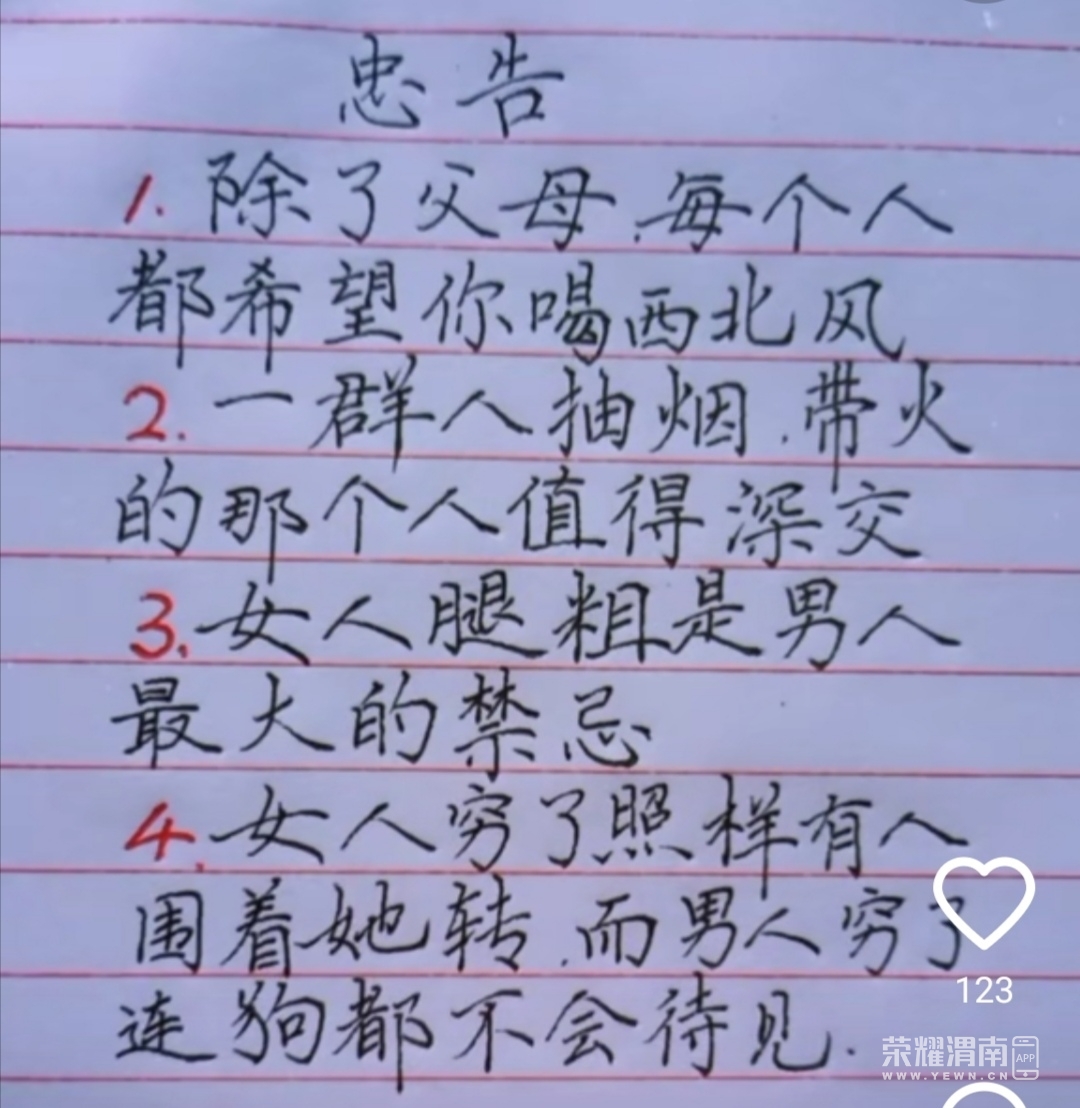 忠告
1. 除了父母.每个人
都希望你喝西北风
2. 一群人抽烟.带火
的那个人值得深交
3. 女人腿粗是男人
最大的禁忌
4. 女人穷了照样有人
围着她转.而男人穷了
连狗都不会待见.
123
荣耀渭南APP
WWW.YEWN.CN